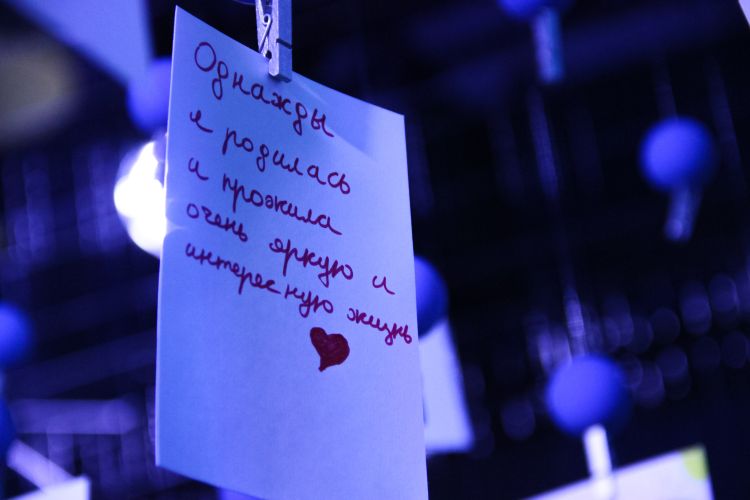 Однажды
я родилась
и прожила
очень яркую и
интересную жизнь